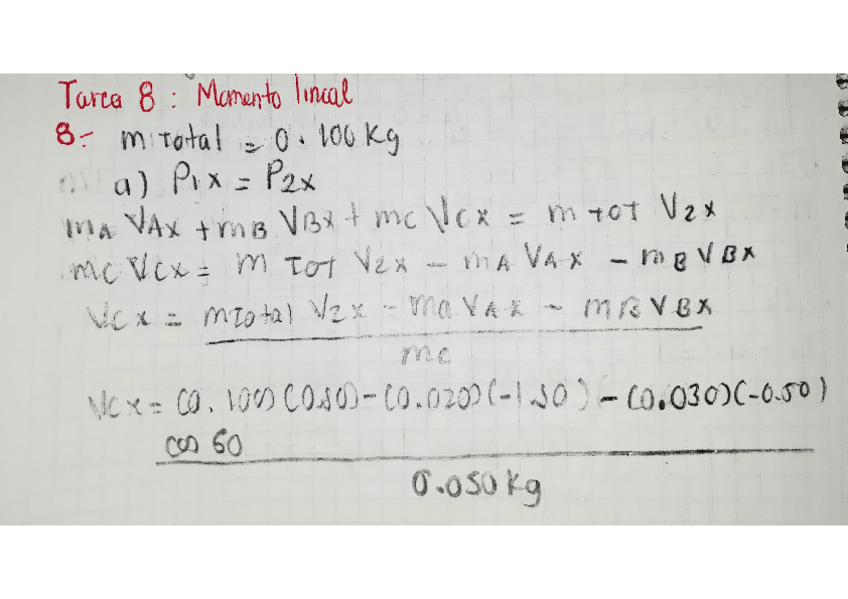 Tarea 8 : Momento lineal
8.- m Total = 0.100 Kg
a) P1x = P2x
mA VAx + mB VBx + mc Vcx = m TOT V2x
mc Vcx = m TOT V2x - mA VAx - mB VBx
Vcx = m Total V2x - ma VAx - mB VBx
mc
Vcx = (0.100)(0.50) - (0.020)(-1.50) - (0.030)(-0.50)
cos 60
0.050 Kg